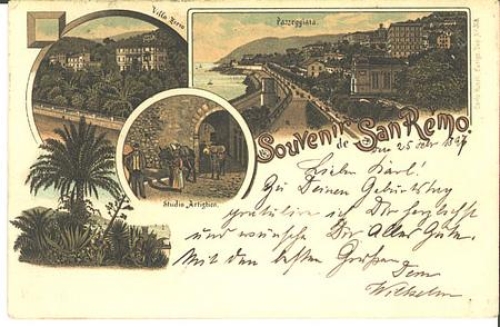 Villa Zirio
Passeggiata
Studio "Artistico.
Souvenir
de San Remo.
25 1897
Lieber Karl!
Zu Deinen Geburtstag
gratulire ich Dir herzlichst
und wünsche Dir Alles Gute.
Mit den besten Grüßen
Dein
Wilhelm